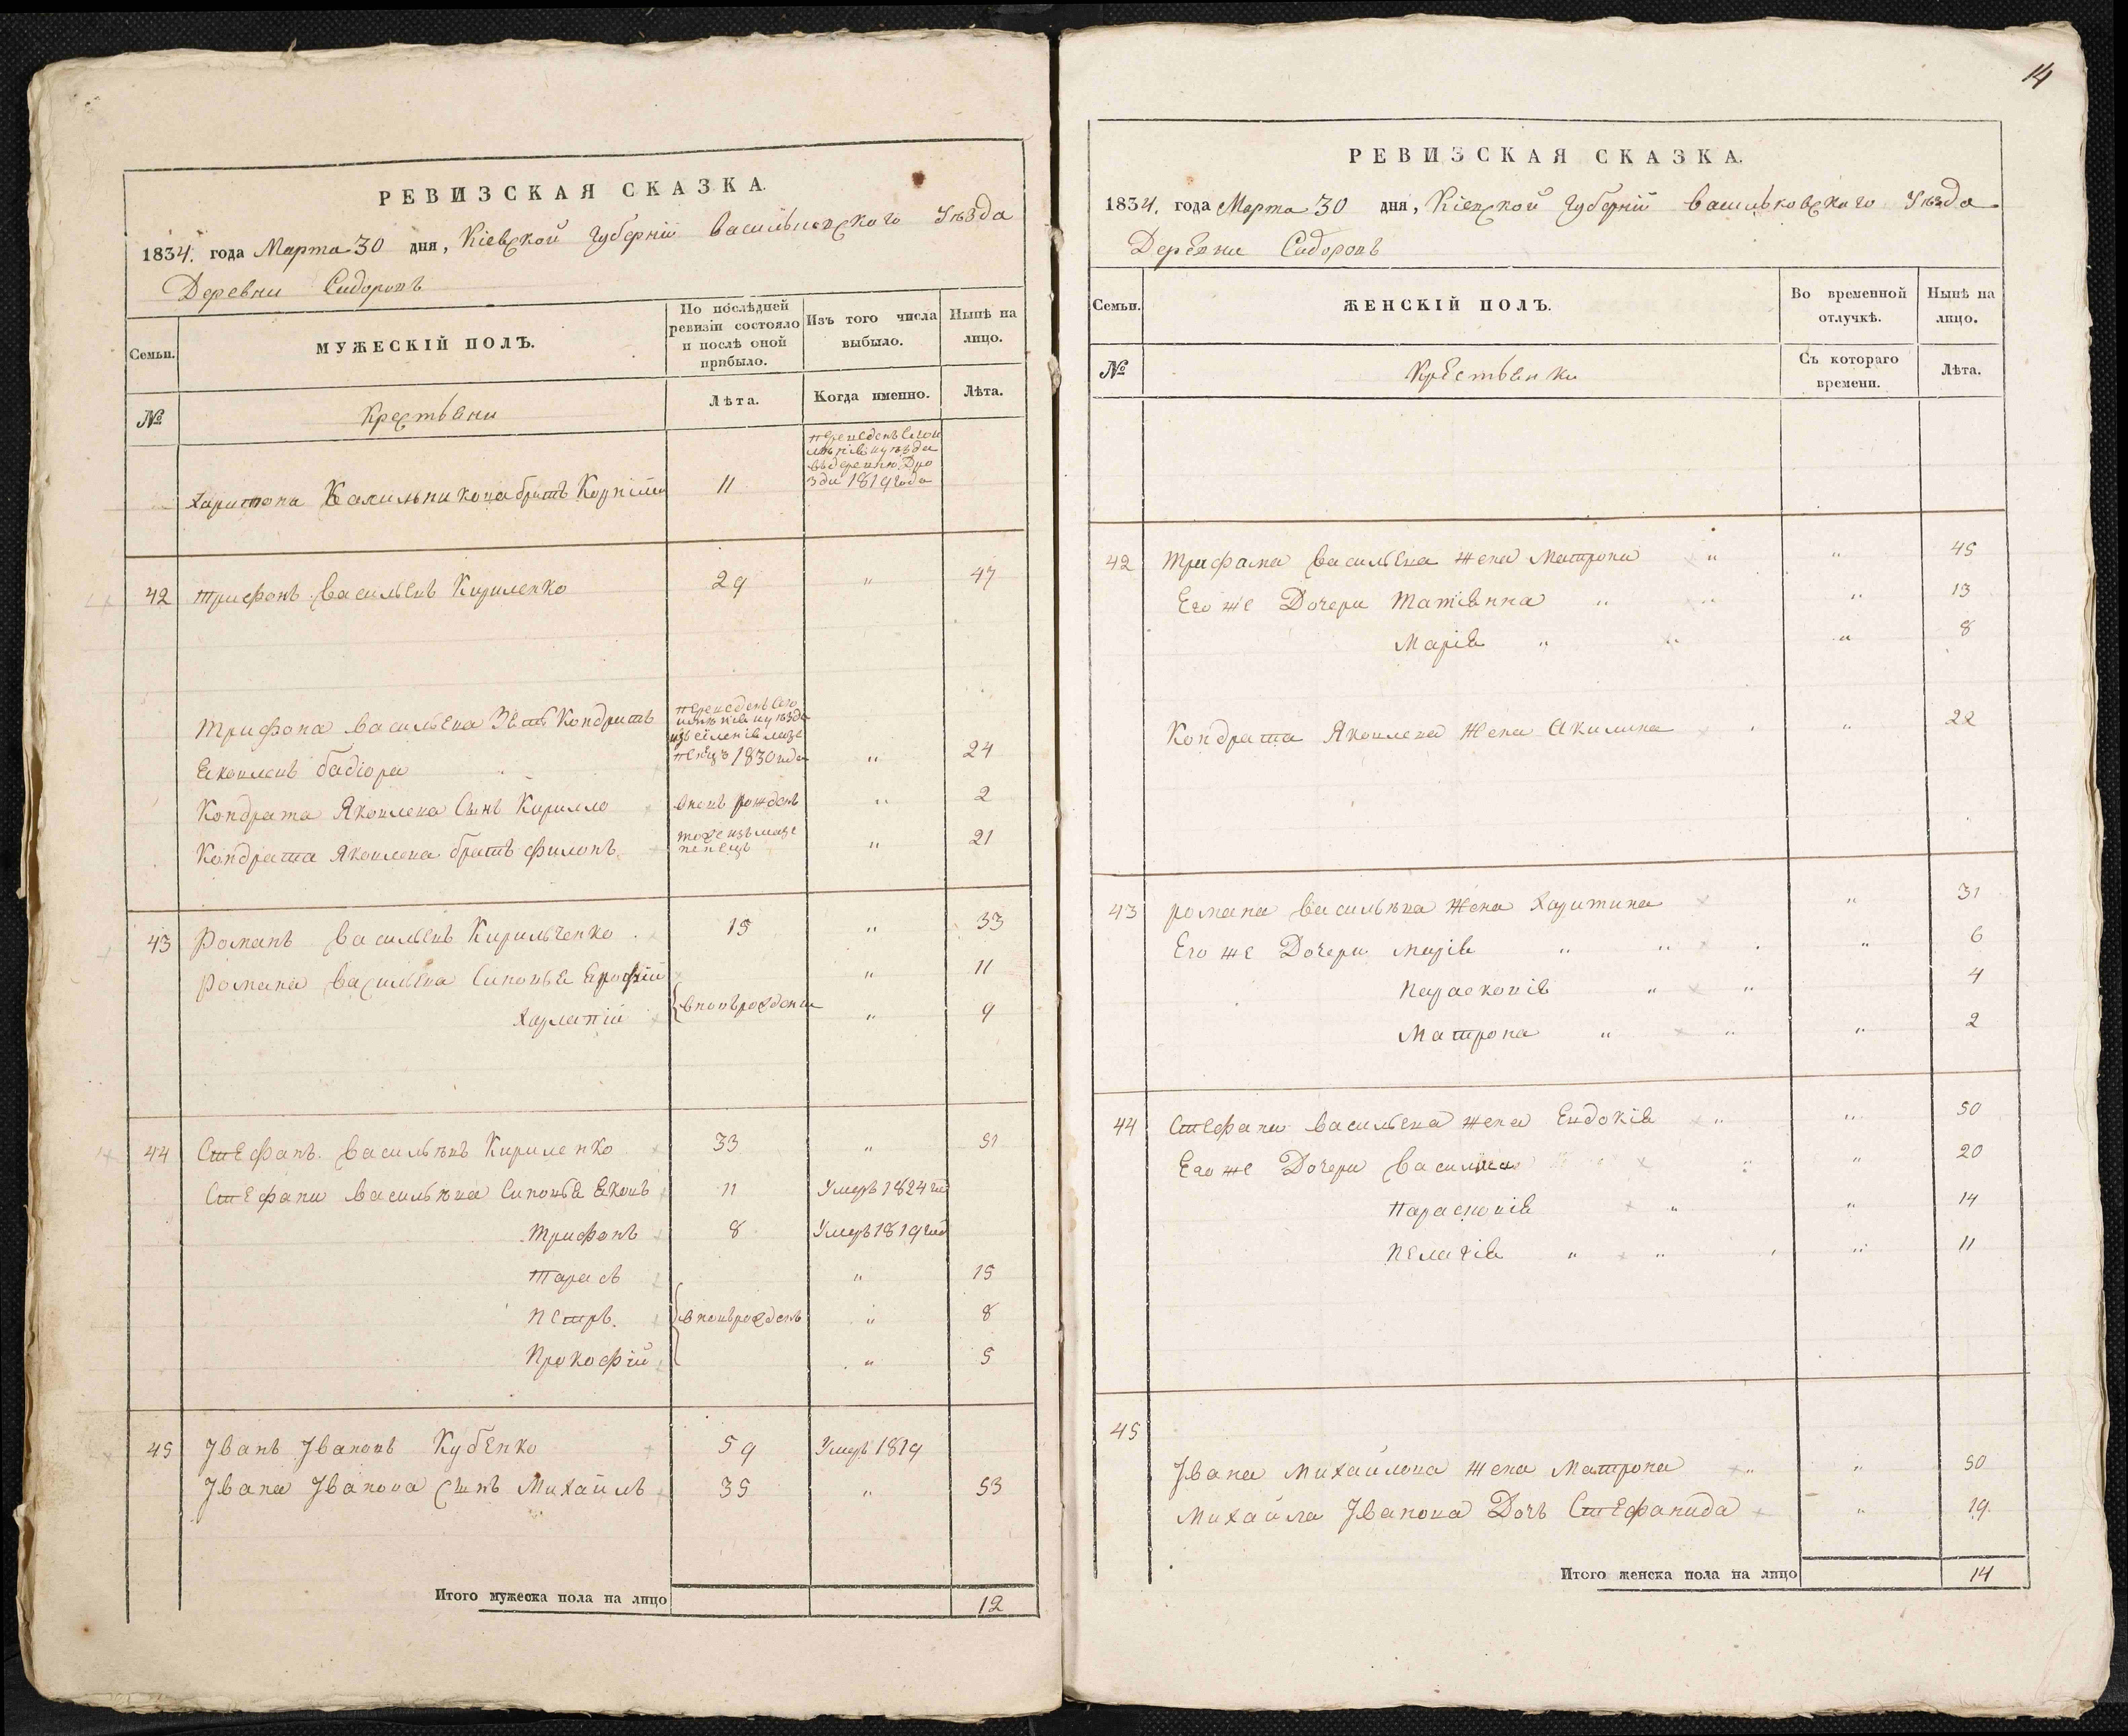 РЕВИЗСКАЯ СКАЗКА.
1834. года Марта 30 дня, Кіевской Губерніи Васильковского Уѣзда
Деревни Сидоровъ
Семьи.
МУЖЕСКІЙ ПОЛЪ.
По послѣдней ревизіи состояло и послѣ оной прибыло.
Изъ того числа выбыло.
Нынѣ на лицо.
№
Крестьяни
Лѣта.
Когда именно.
Лѣта.
Харитона братъ 11 1819 года
42 Трифонъ Васильевъ Кириленко 29 " 47
Трифона Васильева Зять Кондратъ
Яковлевъ 1830 года " 24
Кондрата Яковлева Сынъ Кирилло вновь рожденъ " 2
Кондрата Яковлева братъ Филонъ " 21
43 Романъ Васильевъ Кирильченко 15 " 33
Романа Васильева Сыновья Ерофій " 11
Харлапій вновьрождени " 9
44 Стефанъ Васильѣвъ Кириленко 33 " 51
Стефана Васильѣва Сыновья Яковъ 11 Умеръ 1824 год
Трифонъ 8 Умеръ 1819 год
Тарасъ " 15
Петръ. вновьрожденъ " 8
Прокофій " 5
45 Іванъ Івановъ Кубенко 59 Умеръ 1819
Івана Іванова сынъ Михайлъ 35 " 53
Итого мужеска пола на лицо 12
14
РЕВИЗСКАЯ СКАЗКА.
1834. года Марта 30 дня, Кіевской Губерніи Васильковского Уѣзда
Деревни Сидоровъ
Семьи.
ЖЕНСКІЙ ПОЛЪ.
Во временной отлучкѣ.
Нынѣ на лицо.
№
Крестьянки
Съ котораго времени.
Лѣта.
42 Трифана Васильева жена Матрона " " 45
Его же Дочери Татіянна " " " 13
Марія " " " 8
Кондрата Яковлева жена Акилина " 22
43 Романа Васильѣва жена Харитина " 31
Его же Дочери Марія " " " 6
Парасковія " " 4
Матрона " " " 2
44 Стефана Васильева жена Евдокія " " 50
Его же Дочери Василиса " " 20
Парасковія " " 14
Пелагія " " " 11
45
Івана Михайлова жена Матрона " " 50
Михайла Іванова Дочь Стефанида " 19
Итого женска пола на лицо 14